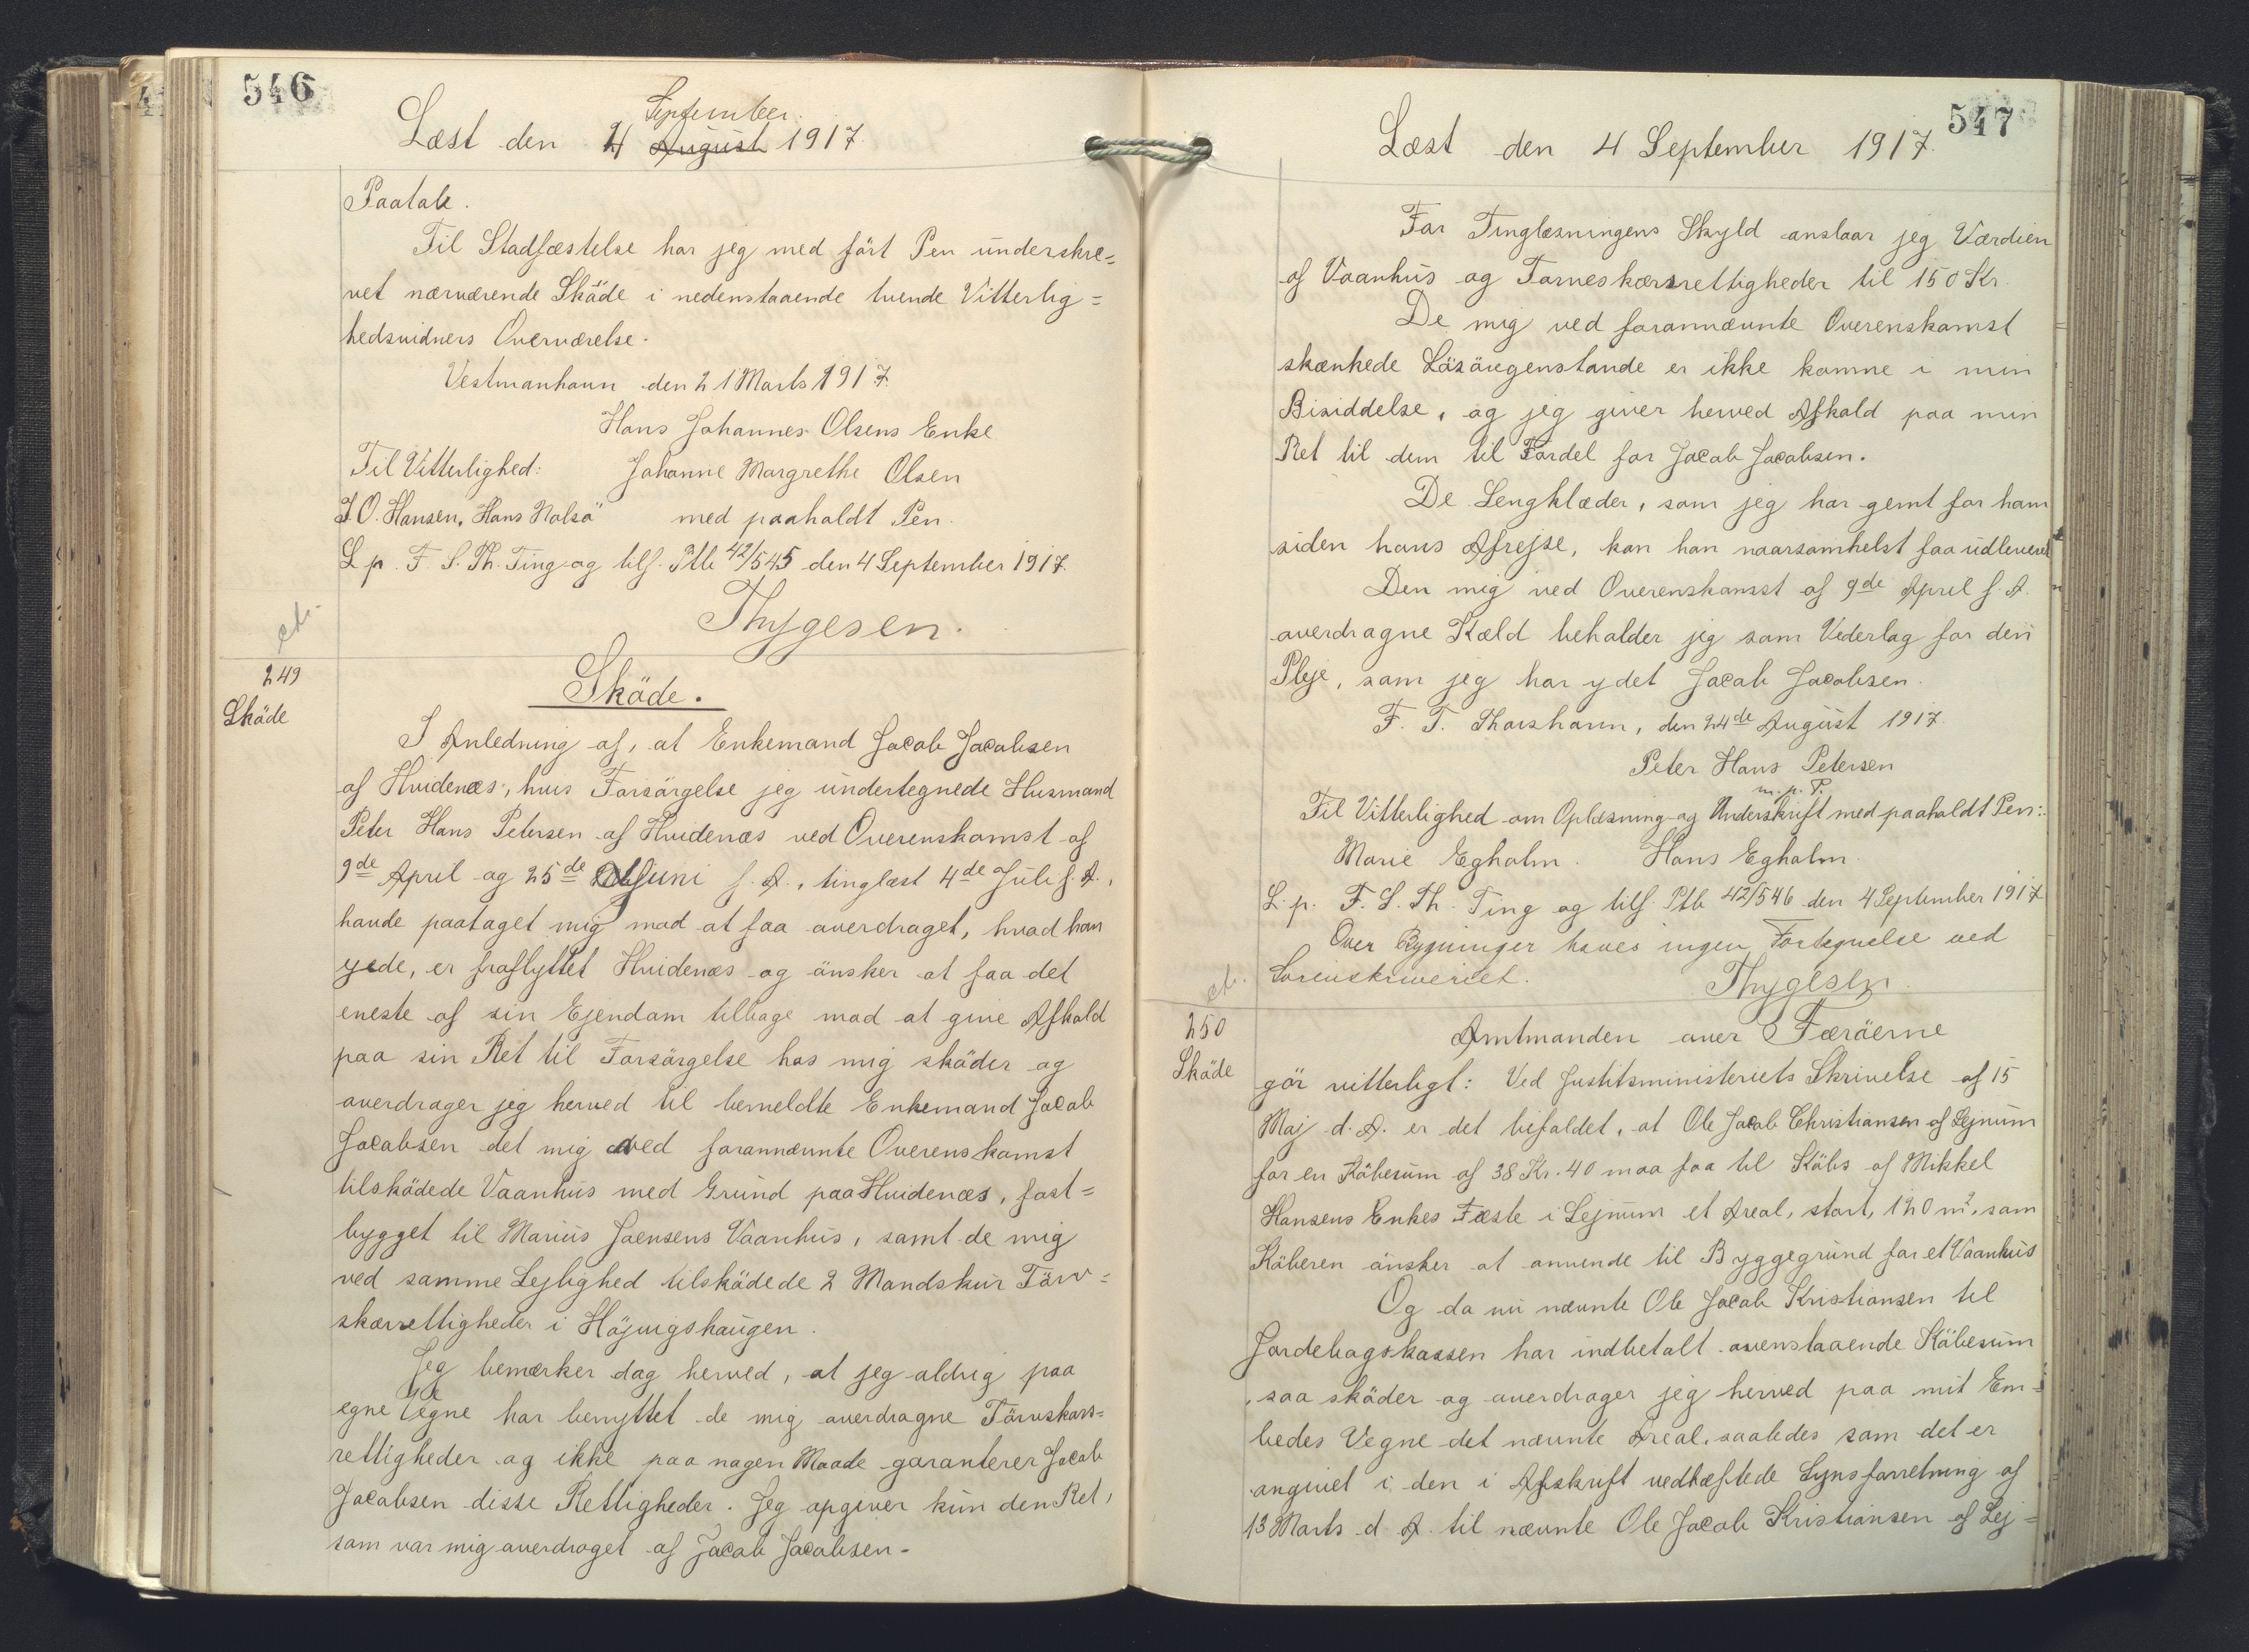 546
September
Læst den 4 August 1917.
Paatale.
Til Stadfæstelse har jeg med ført Pen underskre=
vet nærværende Skøde i nedenstaaende tvende Vitterlig=
hedsvidners Overværelse.
Vestmanhavn den 21 Marts 1917.
Hans Johannes Olsens Enke
Til Vitterlighed: Johanne Margrethe Olsen
J. O. Hansen, Hans Nolsö med paaholdt Pen.
L. p. F. S. Th. Ting og tilf. Ptb 42/545 den 4 September 1917.
Thygesen.
249
Sköde
Sköde.
I Anledning af, at Enkemand Jacob Jacobsen
af Hvidenæs, hvis Forsörgelse jeg undertegnede Husmand
Peter Hans Petersen af Hvidenæs ved Overenskomst af
9de April og 25de Juni f. A., tinglæst 4de Juli f. A.,
havde paataget mig mod at faa overdraget, hvad han
ejede, er fraflyttet Hvidenæs og önsker at faa det
eneste af sin Ejendom tilbage mod at give Afkald
paa sin Ret til Forsörgelse hos mig sköder og
overdrager jeg herved til bemeldte Enkemand Jacob
Jacobsen det mig ved forannævnte Overenskomst
tilsködede Vaanhus med Grund paa Hvidenæs, fast=
bygget til Marius Joensens Vaanhus, samt de mig
ved samme Lejlighed tilsködede 2 Mandskur Törv=
skærrettigheder i Höjvigshaugen.
Jeg bemærker dog herved, at jeg aldrig paa
egne Vegne har benyttet de mig overdragne Törvskærs=
rettigheder og ikke paa nogen Maade garanterer Jacob
Jacobsen disse Rettigheder. Jeg opgiver kun den Ret,
som var mig overdraget af Jacob Jacobsen.
547
Læst den 4 September 1917.
For Tinglæsningens Skyld anslaar jeg Værdien
af Vaanhus og Torveskærsrettigheder til 150 Kr.
De mig ved forannævnte Overenskomst
skænkede Lösöregenstande er ikke komne i min
Besiddelse, og jeg giver herved Afkald paa min
Ret til dem til Fordel for Jacob Jacobsen.
De Sengklæder, som jeg har gemt for ham
siden hans Afrejse, kan han naarsomhelst faa udleveret
Den mig ved Overenskomst af 9de April f. A.
overdragne Kæld beholder jeg som Vederlag for den
Pleje, som jeg har ydet Jacob Jacobsen.
F. T. Thorshavn, den 24de August 1917.
Peter Hans Petersen
m. p. P.
Til Vitterlighed om Oplæsning og Underskrift med paaholdt Pen:
Marie Egholm. Hans Egholm.
L. p. F. S. Th. Ting og tilf. Ptb 42/546 den 4 September 1917
Over Bygninger haves ingen Fortegnelse ved
Sorenskriveriet. Thygesen.
250
Sköde
Amtmanden over Færöerne
gör vitterligt: Ved Justitsministeriets Skrivelse af 15
Maj d. A. er det bifaldet, at Ole Jacob Christiansen af Lejnum
for en Köbesum af 38 Kr. 40 maa faa til Köbs af Mikkel
Hansens Enkes Fæste i Lejnum et Areal, stort, 120 m², som
Köberen önsker at anvende til Byggegrund for et Vaanhus
Og da nu nævnte Ole Jacob Kristiansen til
Jordebogskassen har indbetalt ovenstaaende Köbesum
, saa sköder og overdrager jeg herved paa mit Em=
bedes Vegne det nævnte Areal, saaledes som det er
angivet i den i Afskrift vedhæftede Synsforretning af
13 Marts d. A. til nævnte Ole Jacob Kristiansen af Lej=